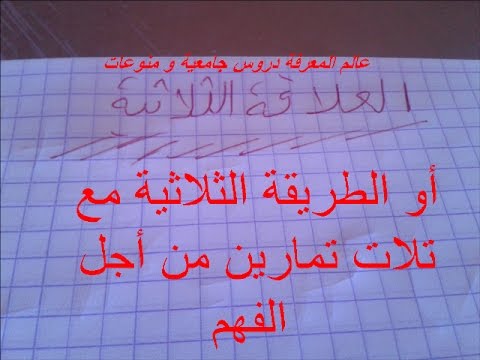 عالم المعرفة دروس جامعية و منوعات
العلاقة الثلاثية
أو الطريقة الثلاثية مع
تلات تمارين من أجل
الفهم